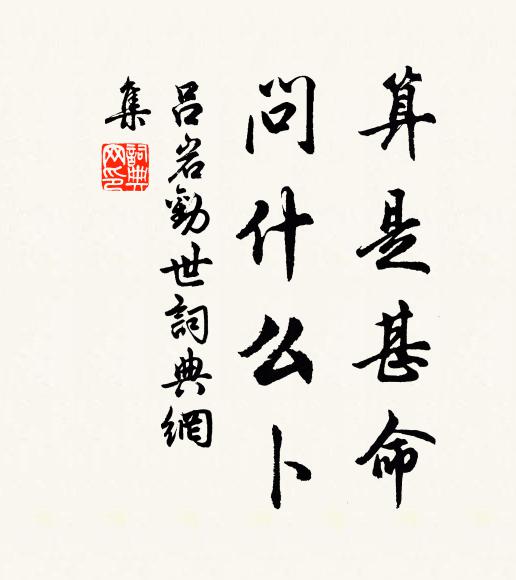 算是甚命
問什么卜
吕岩勸世詞典網
集
詞典
网印